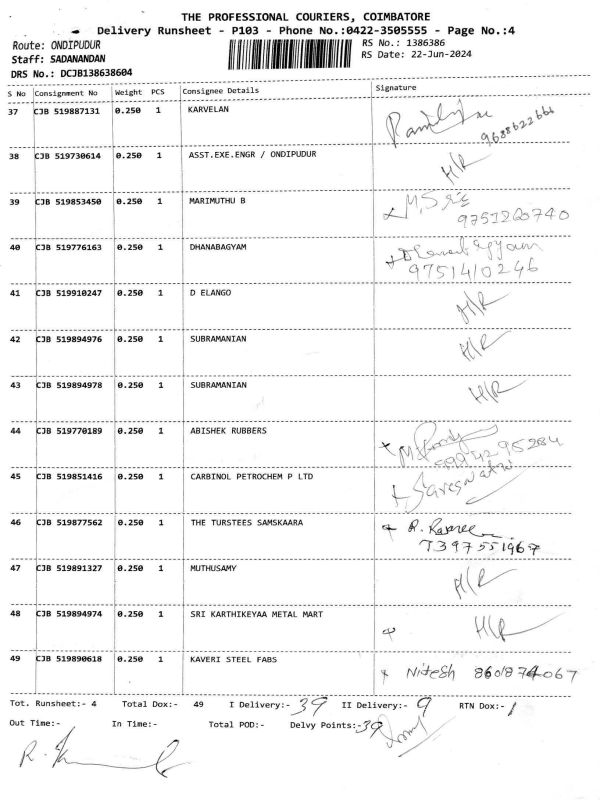 THE PROFESSIONAL COURIERS, COIMBATORE
Delivery Runsheet - P103 - Phone No.:0422-3505555 - Page No.:4
Route: ONDIPUDUR RS No.: 1386386
Staff: SADANANDAN RS Date: 22-Jun-2024
DRS No.: DCJB138638604
S No Consignment No Weight PCS Consignee Details Signature
37 CJB 519887131 0.250 1 KARVELAN
9688622666
38 CJB 519730614 0.250 1 ASST.EXE.ENGR / ONDIPUDUR H/R
39 CJB 519853450 0.250 1 MARIMUTHU B
9751220740
40 CJB 519776163 0.250 1 DHANABAGYAM Dhanabagyam
9751410246
41 CJB 519910247 0.250 1 D ELANGO H/R
42 CJB 519894976 0.250 1 SUBRAMANIAN H/R
43 CJB 519894978 0.250 1 SUBRAMANIAN H/R
44 CJB 519770189 0.250 1 ABISHEK RUBBERS
9994295284
45 CJB 519851416 0.250 1 CARBINOL PETROCHEM P LTD
46 CJB 519877562 0.250 1 THE TURSTEES SAMSKAARA
7397551967
47 CJB 519891327 0.250 1 MUTHUSAMY H/R
48 CJB 519894974 0.250 1 SRI KARTHIKEYAA METAL MART H/R
49 CJB 519890618 0.250 1 KAVERI STEEL FABS Nitesh 8601874067
Tot. Runsheet:- 4 Total Dox:- 49 I Delivery:- 39 II Delivery:- 9 RTN Dox:- 1
Out Time:- In Time:- Total POD:- Delvy Points:- 39